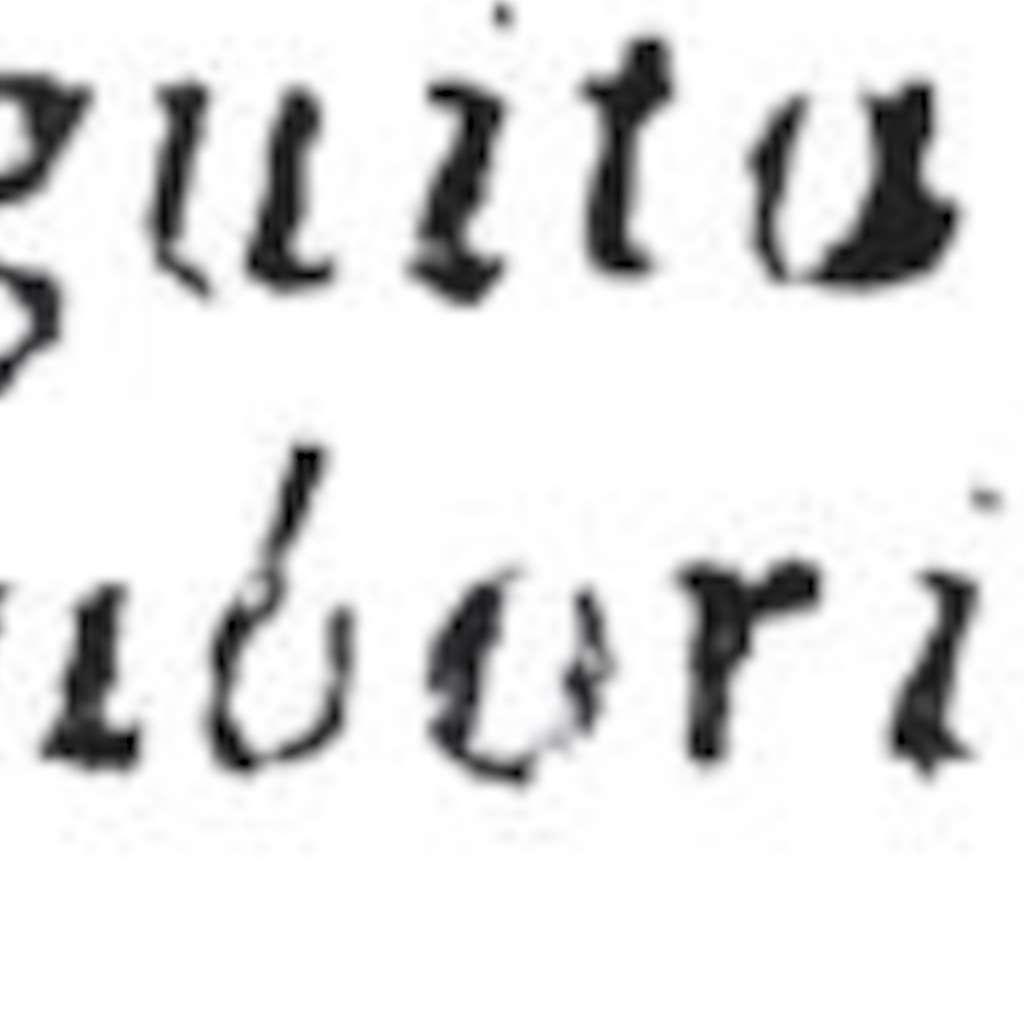 guita
ubori